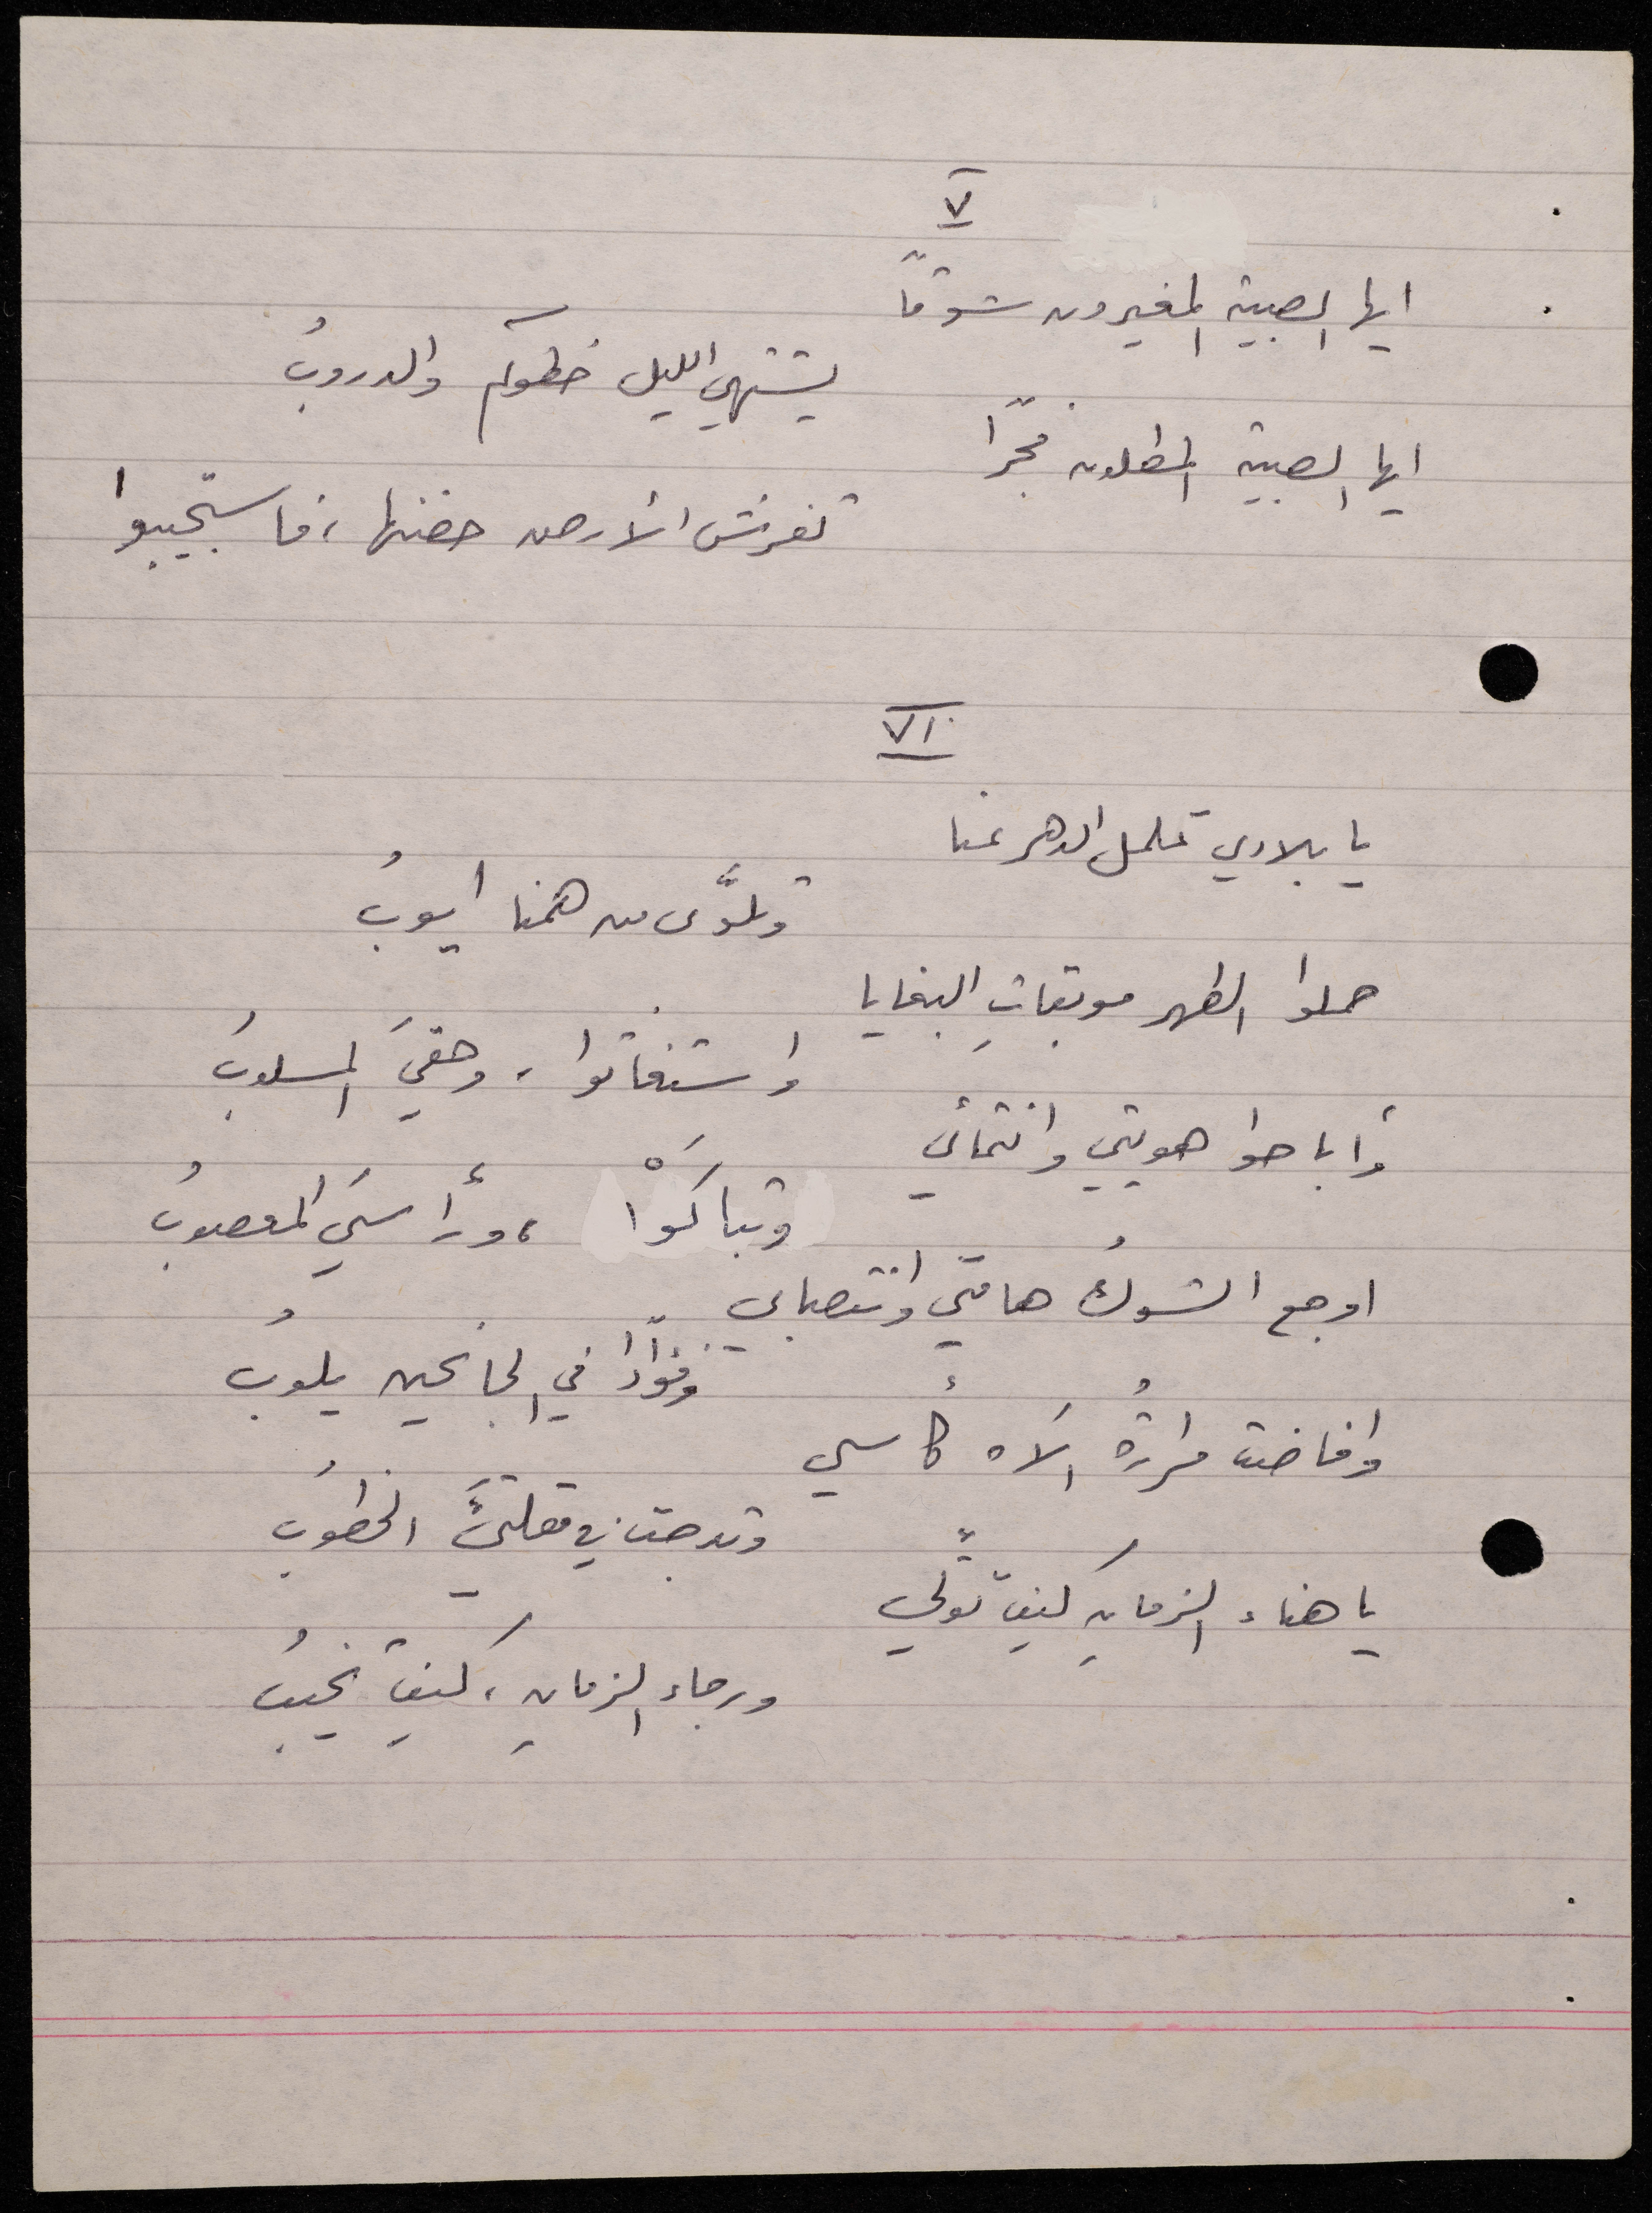 V
ايها الصبية المغيرون شوقاً
يشتهي الليل خطوكم والدروبُ
ايها الصبية المطلون فجرًا
تفرش الأرض حضنها، فاستجيبوا
VI
يا بلادي تململ الدهر عنا
وتلوَّى من همنا ايوبُ
حملوا الطهر موبقاتِ البغايا
واستغاثوا، وحقيَ المسلوبُ
وأباحوا هويتي وانتمائي
وتباكَوْا، ورأسيَ المعصوبُ
اوجع الشوكُ هامتي وانتصابي
وفؤادًا في الجانحين يلوبُ
وافاضت مرارةُ الآه كأسي
وتدجت في مقلتيَّ الخطوبُ
يا هناء الزمانِ كيف تولّي
ورجاء الزمانِ، كيف نخيبُ